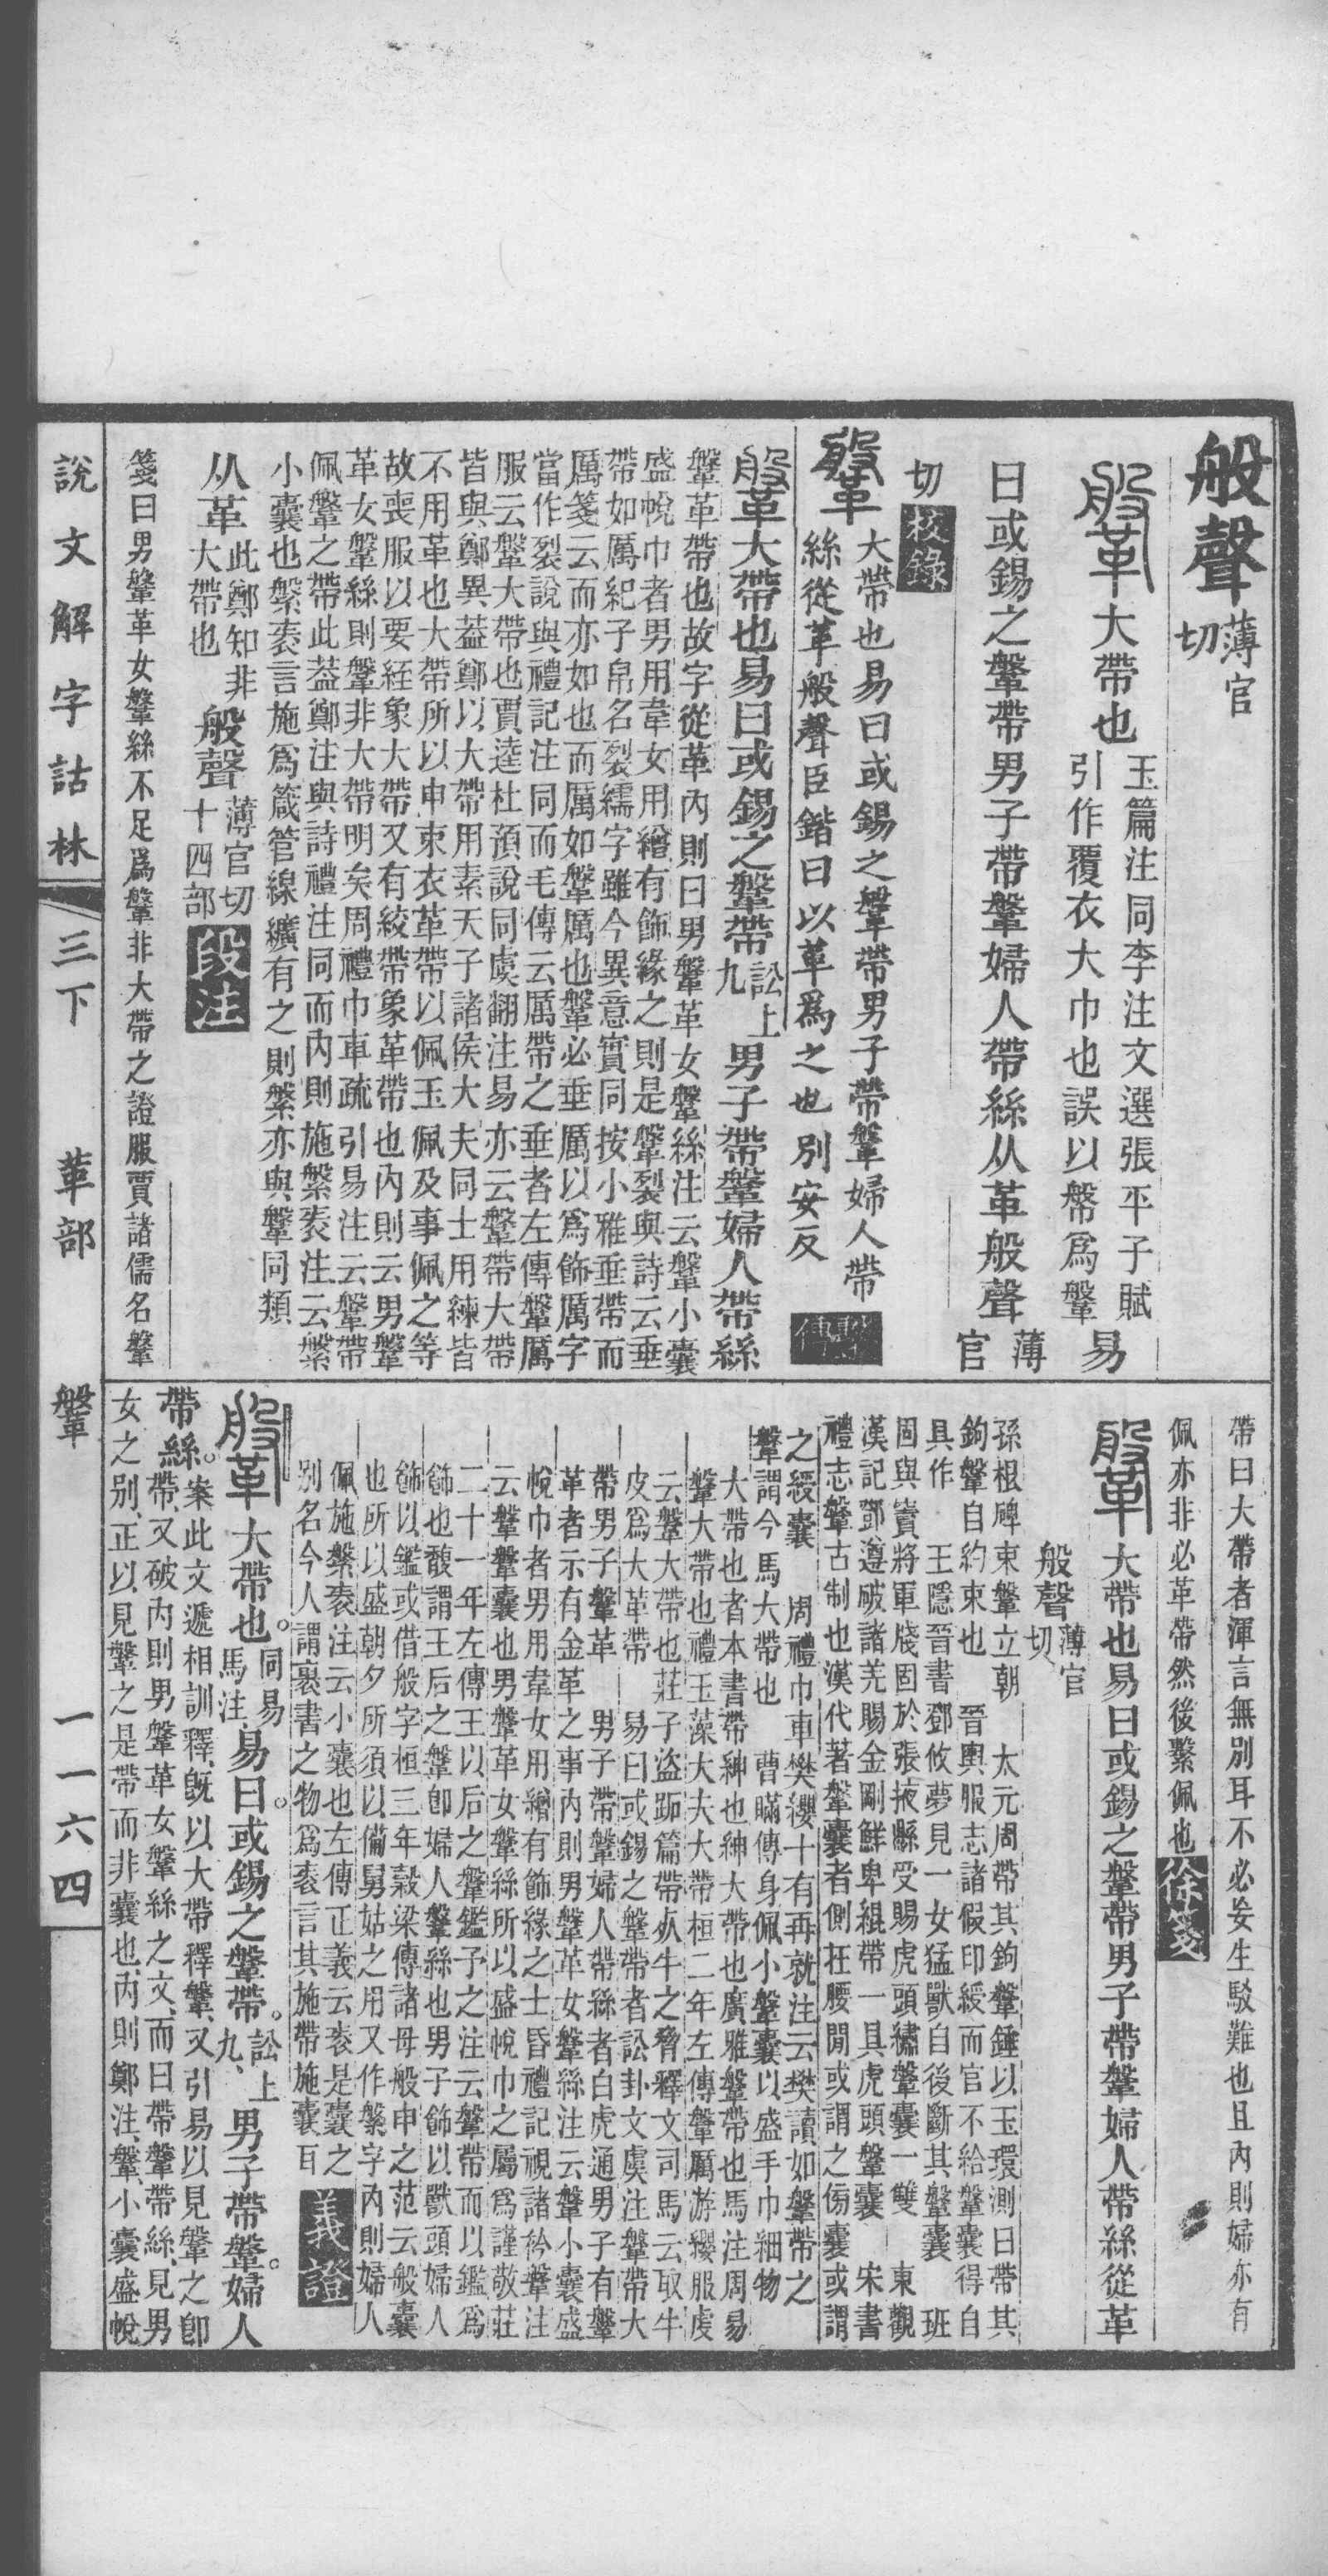 般聲薄官
切
鞶大帶也玉篇注同李注文選張平子賦
引作覆衣大巾也誤以幋爲鞶易
曰或錫之鞶帶男子帶鞶婦人帶絲从革般聲薄
官
切校錄
鞶大帶也易曰或錫之鞶帶男子帶鞶婦人帶
絲從革般聲臣鍇曰以革爲之也別安反繫傳
鞶大帶也易曰或錫之鞶帶訟上
九男子帶鞶婦人帶絲
鞶革帶也故字從革內則曰男鞶革女鞶絲注云鞶小囊
盛帨巾者男用韋女用繒有飾緣之則是鞶裂與詩云垂
帶如厲紀子帛名裂繻字雖今異意實同按小雅垂帶而
厲箋云而亦如也而厲如鞶厲也鞶必垂厲以爲飾厲字
當作裂說與禮記注同而毛傳云厲帶之垂者左傳鞶厲
服云鞶大帶也賈逵杜預說同虞翻注易亦云鞶帶大帶
皆與鄭異葢鄭以大帶用素天子諸侯大夫同士用練皆
不用革也大帶所以申束衣革帶以佩玉佩及事佩之等
故喪服以要絰象大帶又有絞帶象革帶也內則云男鞶
革女鞶絲則鞶非大帶明矣周禮巾車疏引易注云鞶帶
佩鞶之帶此葢鄭注與詩禮注同而內則施縏袠注云縏
小囊也縏袠言施爲箴管線纊有之則縏亦與鞶同類
从革此鄭知非
大帶也般聲薄官切
十四部段注
箋曰男鞶革女鞶絲不足爲鞶非大帶之證服賈諸儒名鞶
帶曰大帶者渾言無別耳不必妄生駁難也且內則婦亦有
佩亦非必革帶然後繫佩也徐箋
鞶大帶也易曰或錫之鞶帶男子帶鞶婦人帶絲從革
般聲薄官
切
孫根碑束鞶立朝 太元周帶其鉤鞶錘以玉環測曰帶其
鉤鞶自約束也 晉輿服志諸假印綬而官不給鞶囊得自
具作 王隱晉書鄧攸夢見一女猛獸自後斷其鞶囊 班
固與竇將軍牋固於張掖縣受賜虎頭繡鞶囊一雙 東觀
漢記鄧遵破諸羌賜金剛鮮卑緄帶一具虎頭鞶囊 宋書
禮志鞶古制也漢代著鞶囊者側在腰閒或謂之傍囊或謂
之綬囊 周禮巾車樊纓十有再就注云樊讀如鞶帶之
鞶謂今馬大帶也 曹瞞傳身佩小鞶囊以盛手巾細物
大帶也者本書帶紳也紳大帶也廣雅鞶帶也馬注周易
鞶大帶也禮玉藻大夫大帶桓二年左傳鞶厲游纓服虔
云鞶大帶也莊子盜跖篇帶死牛之脅釋文司馬云取牛
皮爲大革帶 易曰或錫之鞶帶者訟卦文虞注鞶帶大
帶男子鞶革 男子帶鞶婦人帶絲者白虎通男子有鞶
革者示有金革之事內則男鞶革女鞶絲注云鞶小囊盛
帨巾者男用韋女用繒有飾緣之士昏禮記視諸衿鞶注
云鞶鞶囊也男鞶革女鞶絲所以盛帨巾之屬爲謹敬莊
二十一年左傳王以后之鞶鑑予之注云鞶帶而以鑑爲
飾也馥謂王后之鞶卽婦人鞶絲也男子飾以獸頭婦人
飾以鑑或借般字桓三年穀梁傳諸母般申之范云般囊
也所以盛朝夕所須以備舅姑之用又作縏字內則婦人
佩施縏袠注云小囊也左傳正義云袠是囊之
別名今人謂裹書之物爲袠言其施帶施囊耳義證
鞶大帶也。同易
馬注、易曰。或錫之鞶帶。訟上
九、男子帶鞶。婦人
帶絲。案此文遞相訓釋、旣以大帶釋鞶、又引易以見鞶之卽
帶、又破內則男鞶革女鞶絲之文、而曰帶鞶帶絲、見男
女之別、正以見鞶之是帶而非囊也、內則鄭注、鞶、小囊盛帨
說文解字詁林 三下 革部 鞶 一一六四